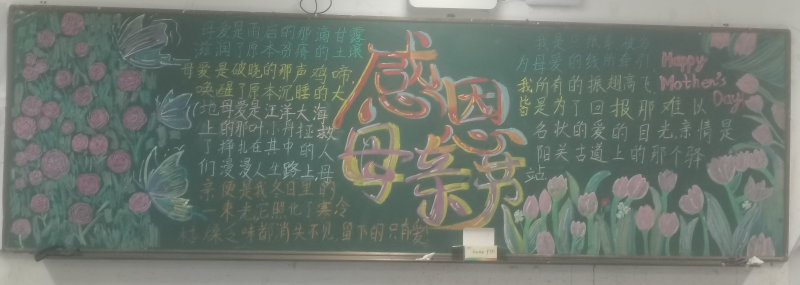 母爱是雨后的那滴甘露
滋润了原本的土壤
母爱是破晓的那声鸡啼
唤醒了原本沉睡的大
地母爱是汪洋大海
上的那叶小舟拯救
了挣扎在其中的人
们漫漫人生路上母
亲便是我冬日里的
一束光它照化了寒冷
之味都消失不见留下的只有爱
感恩
母亲节
Happy
Mother's
Day
我所有的振翅高飞
皆是为了回报那难以
名状的爱的目光亲情是
阳关古道上的那个驿
站